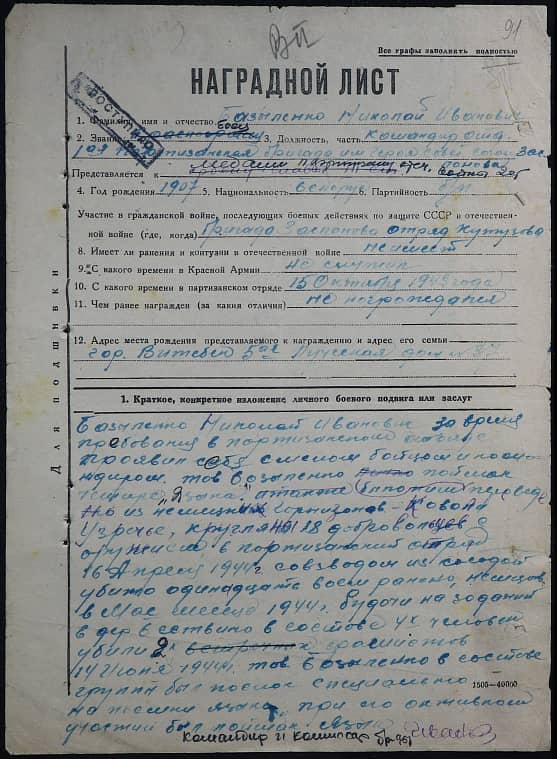 91
ВП
Все графы заполнять полностью
НАГРАДНОЙ ЛИСТ
ПОСТУПИЛО
1. Фамилия, имя и отчество Базыленко Николай Иванович
2. Звание боец 3. Должность, часть Командир отд.
Партизанская бригада им. героя Сов. Союза Зас
Представляется к медали партизану отеч. войны 2ст
лонова
4. Год рождения 1907 5. Национальность белорус 6. Партийность б/п
Участие в гражданской войне, последующих боевых действиях по защите СССР и отечествен-
ной войне (где, когда) бригада Заслонова отряд Кутузова
8. Имеет ли ранения и контузии в отечественной войне не имеет
9. С какого времени в Красной Армии не служил
10. С какого времени в партизанском отряде 15 Октября 1943 года
11. Чем ранее награжден (за какие отличия) не награждался
12. Адрес места рождения представляемого к награждению и адрес его семьи
гор. Витебск 5ая дом № 37
Для подшивки
1. Краткое, конкретное изложение личного боевого подвига или заслуг
Базыленко Николай Иванович за время
пребывания в партизанском отряде
проявил себя смелым бойцом и коман
диром. тов Базыленко поймал
"Языка"
но из немецких гарнизонов
Узречье, 28 добровольцев с
оружием в партизанский отряд
16 Апреля 1944 г со взводом из засады
убито одинадцать восем ранено, немцов
в Мае месяце 1944 г. будучи на задании
в дер в составе 4х человек
убили 2х фашистов
14 Июня 1944 г. тов Базыленко в составе
группы был послан специально
на поимки языка, при его активном
участии был пойман Язык
1505—40000
Командир и Комиссар бр-ды